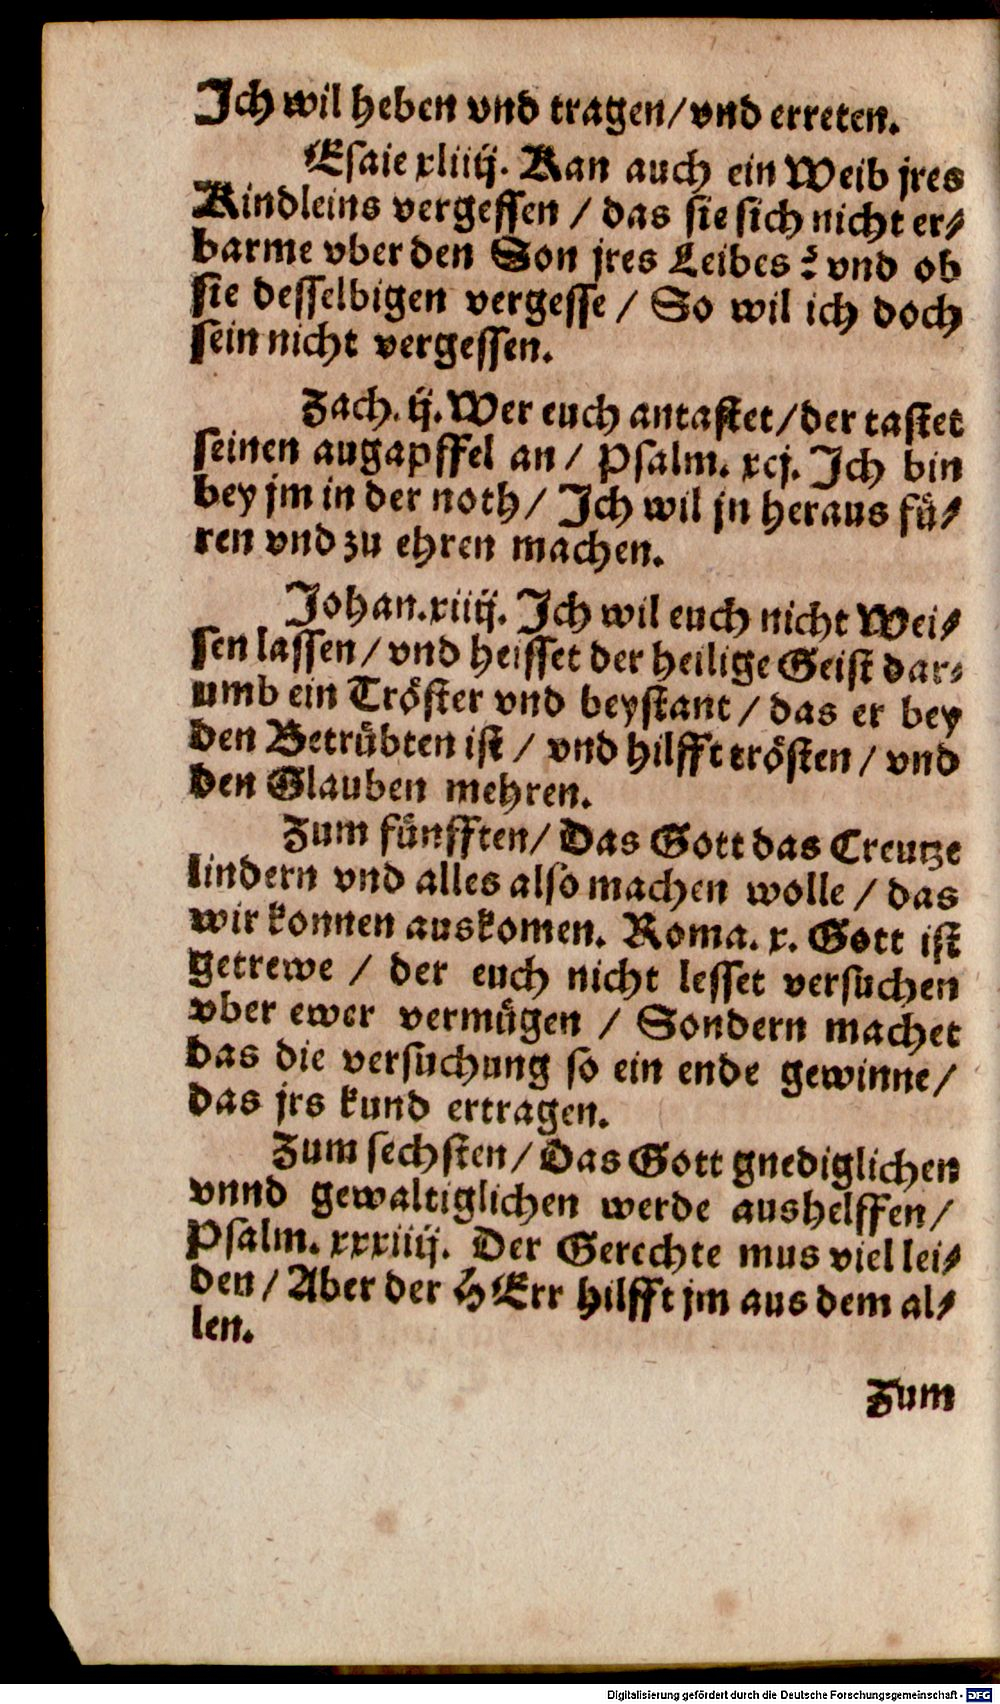 Ich wil heben vnd tragen/ vnd erreten.
Esaie xliiij. Kan auch ein Weib jres
Kindleins vergessen / das sie sich nicht er-
barme vber den Son jres Leibes? vnd ob
sie desselbigen vergesse / So wil ich doch
sein nicht vergessen.
Zach. ij. Wer euch antastet/ der tastet
seinen augapffel an / Psalm. xcj. Ich bin
bey jm in der noth/ Ich wil jn heraus fü-
ren vnd zu ehren machen.
Johan. xiiij. Ich wil euch nicht Wei-
sen lassen/ vnd heisset der heilige Geist dar-
umb ein Tröster vnd beystant / das er bey
den Betrübten ist / vnd hilfft trösten / vnd
den Glauben mehren.
Zum fünfften/ Das Gott das Creutze
lindern vnd alles also machen wolle / das
wir konnen auskomen. Roma. x. Gott ist
getrewe / der euch nicht lesset versuchen
vber ewer vermügen / Sondern machet
das die versuchung so ein ende gewinne/
das jrs kund ertragen.
Zum sechsten/ Das Gott gnediglichen
vnnd gewaltiglichen werde aushelffen/
Psalm. xxxiiij. Der Gerechte mus viel lei-
den/ Aber der HErr hilfft jm aus dem al-
len.
Zum
Digitalisierung gefördert durch die Deutsche Forschungsgemeinschaft - DFG